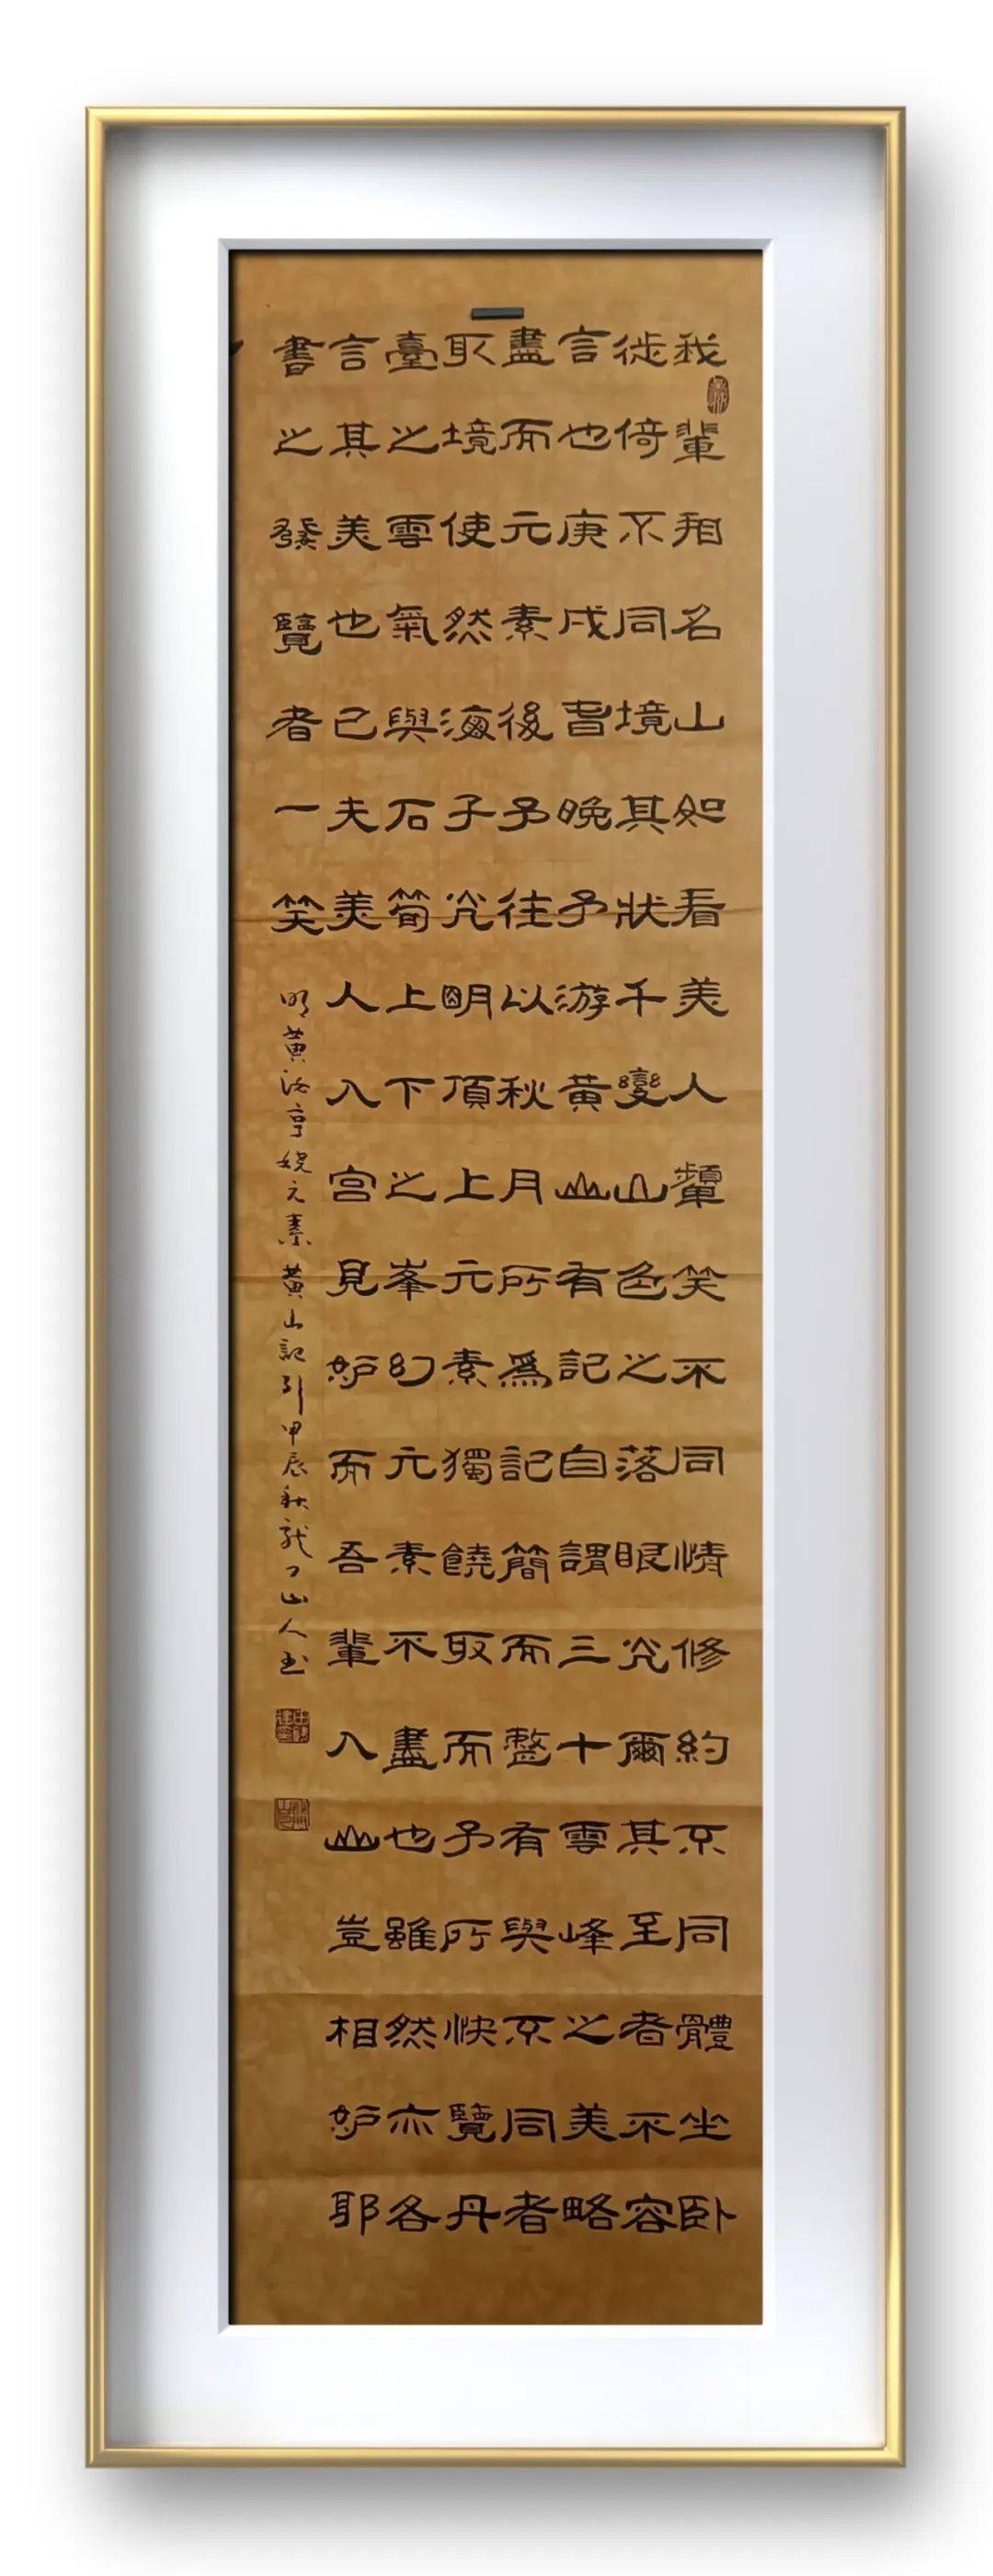 我輩相名山如看美人顰笑不同情修約不同體坐臥
徙倚不同境其狀千變山色之落眼光爾其至者不容
言也庚戌春晚予游黃山有記自謂三十雲峰之美略
盡而元素後予往以秋月所為記簡而整有與不同者
取境使然海子光明頂上元素獨饒取而予所快覽丹
臺之雲氣與石筍上下之峯幻元素不盡也雖然亦各
言其美也已夫美人入宮見妒而吾輩入山豈相妒耶
書之發覽者一笑
明黃汝亨姚元素黃山記引甲辰秋龍山人书